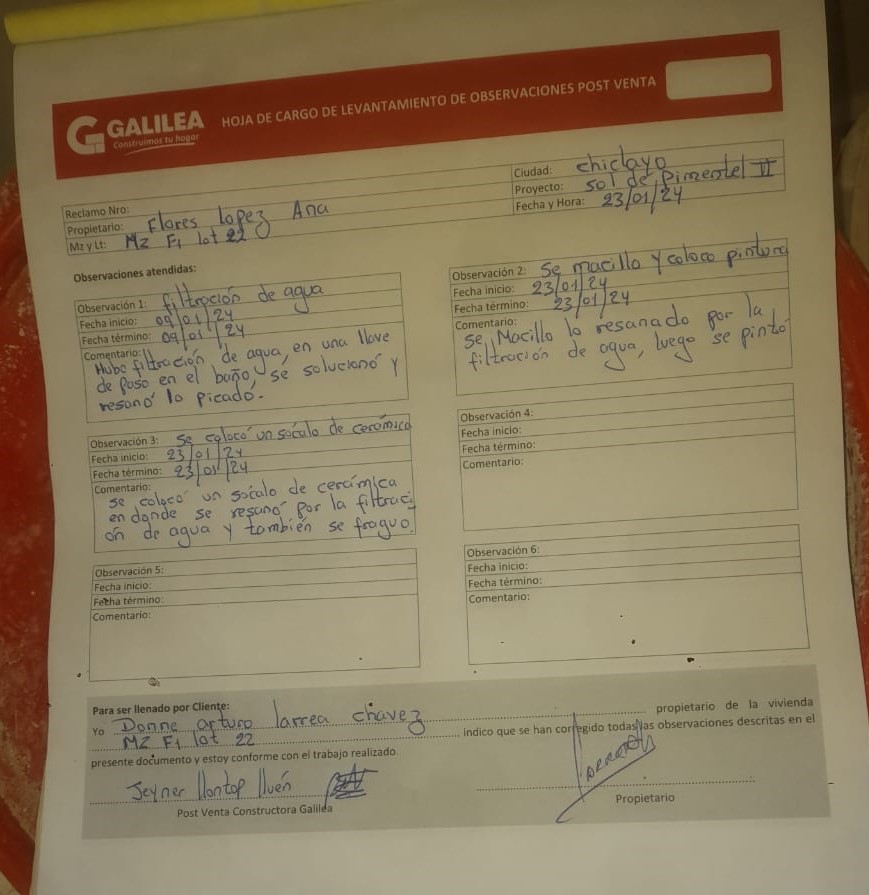 GALILEA
Construimos tu hogar
HOJA DE CARGO DE LEVANTAMIENTO DE OBSERVACIONES POST VENTA
Reclamo Nro:
Propietario: Flores Lopez Ana
Mz y Lt: Mz F1 lot 22
Ciudad: chiclayo
Proyecto: Sol de Pimentel II
Fecha y Hora: 23/01/24
Observaciones atendidas:
Observación 1: filtración de agua
Fecha inicio: 09/01/24
Fecha término: 09/01/24
Comentario:
Hubo filtración de agua, en una llave
de paso en el baño, se solucionó y
resanó lo picado.
Observación 2: Se macillo y coloco pintura
Fecha inicio: 23/01/24
Fecha término: 23/01/24
Comentario:
se Macillo lo resanado por la
filtración de agua, luego se pintó
Observación 3: Se colocó un socalo de ceromica
Fecha inicio: 23/01/24
Fecha término: 23/01/24
Comentario:
se colocó un socalo de cerámica
en donde se resanó por la filtraci
ón de agua y también se fraguo.
Observación 4:
Fecha inicio:
Fecha término:
Comentario:
Observación 5:
Fecha inicio:
Fecha término:
Comentario:
Observación 6:
Fecha inicio:
Fecha término:
Comentario:
Para ser llenado por Cliente:
Yo Donne arturo larrea chavez propietario de la vivienda
MZ F1 lot 22, indico que se han corregido todas las observaciones descritas en el
presente documento y estoy conforme con el trabajo realizado.
Jeyner llontop lluén
Post Venta Constructora Galilea
Propietario